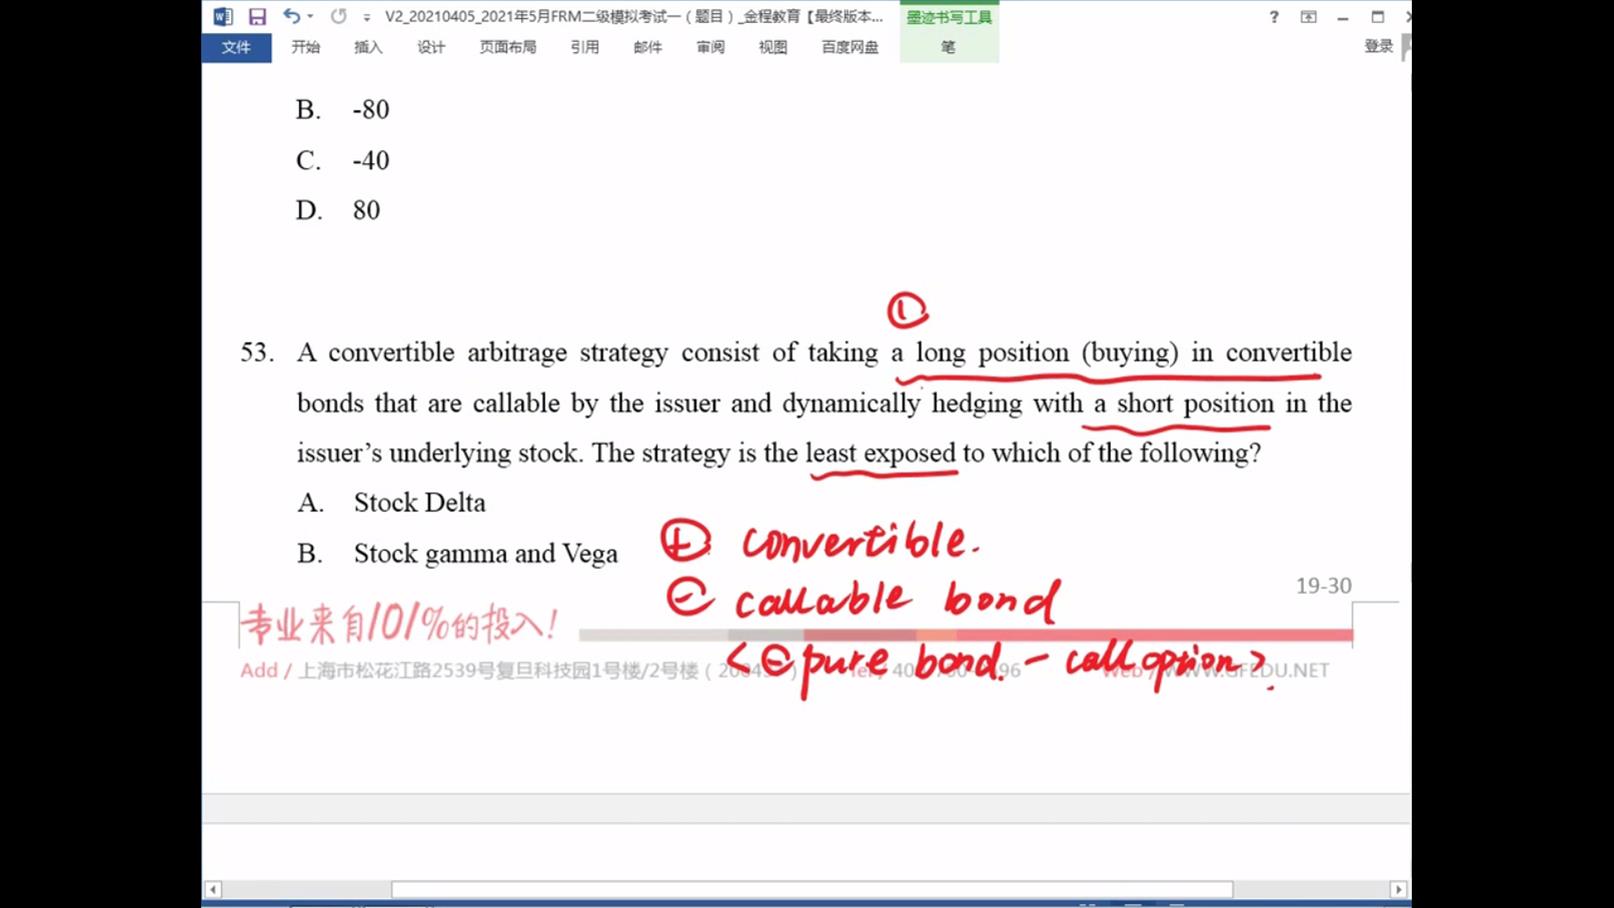 V2_20210405_2021年5月FRM二级模拟考试一（题目）_金程教育【最终版本...
墨迹书写工具
文件 开始 插入 设计 页面布局 引用 邮件 审阅 视图 百度网盘 笔 登录
B. -80
C. -40
D. 80
①
53. A convertible arbitrage strategy consist of taking a long position (buying) in convertible
bonds that are callable by the issuer and dynamically hedging with a short position in the
issuer's underlying stock. The strategy is the least exposed to which of the following?
A. Stock Delta
⊕ convertible.
B. Stock gamma and Vega
⊖ callable bond
19-30
专业来自101%的投入!
<⊖ pure bond. - call option>
Add / 上海市松花江路2539号复旦科技园1号楼/2号楼
GFEDU.NET